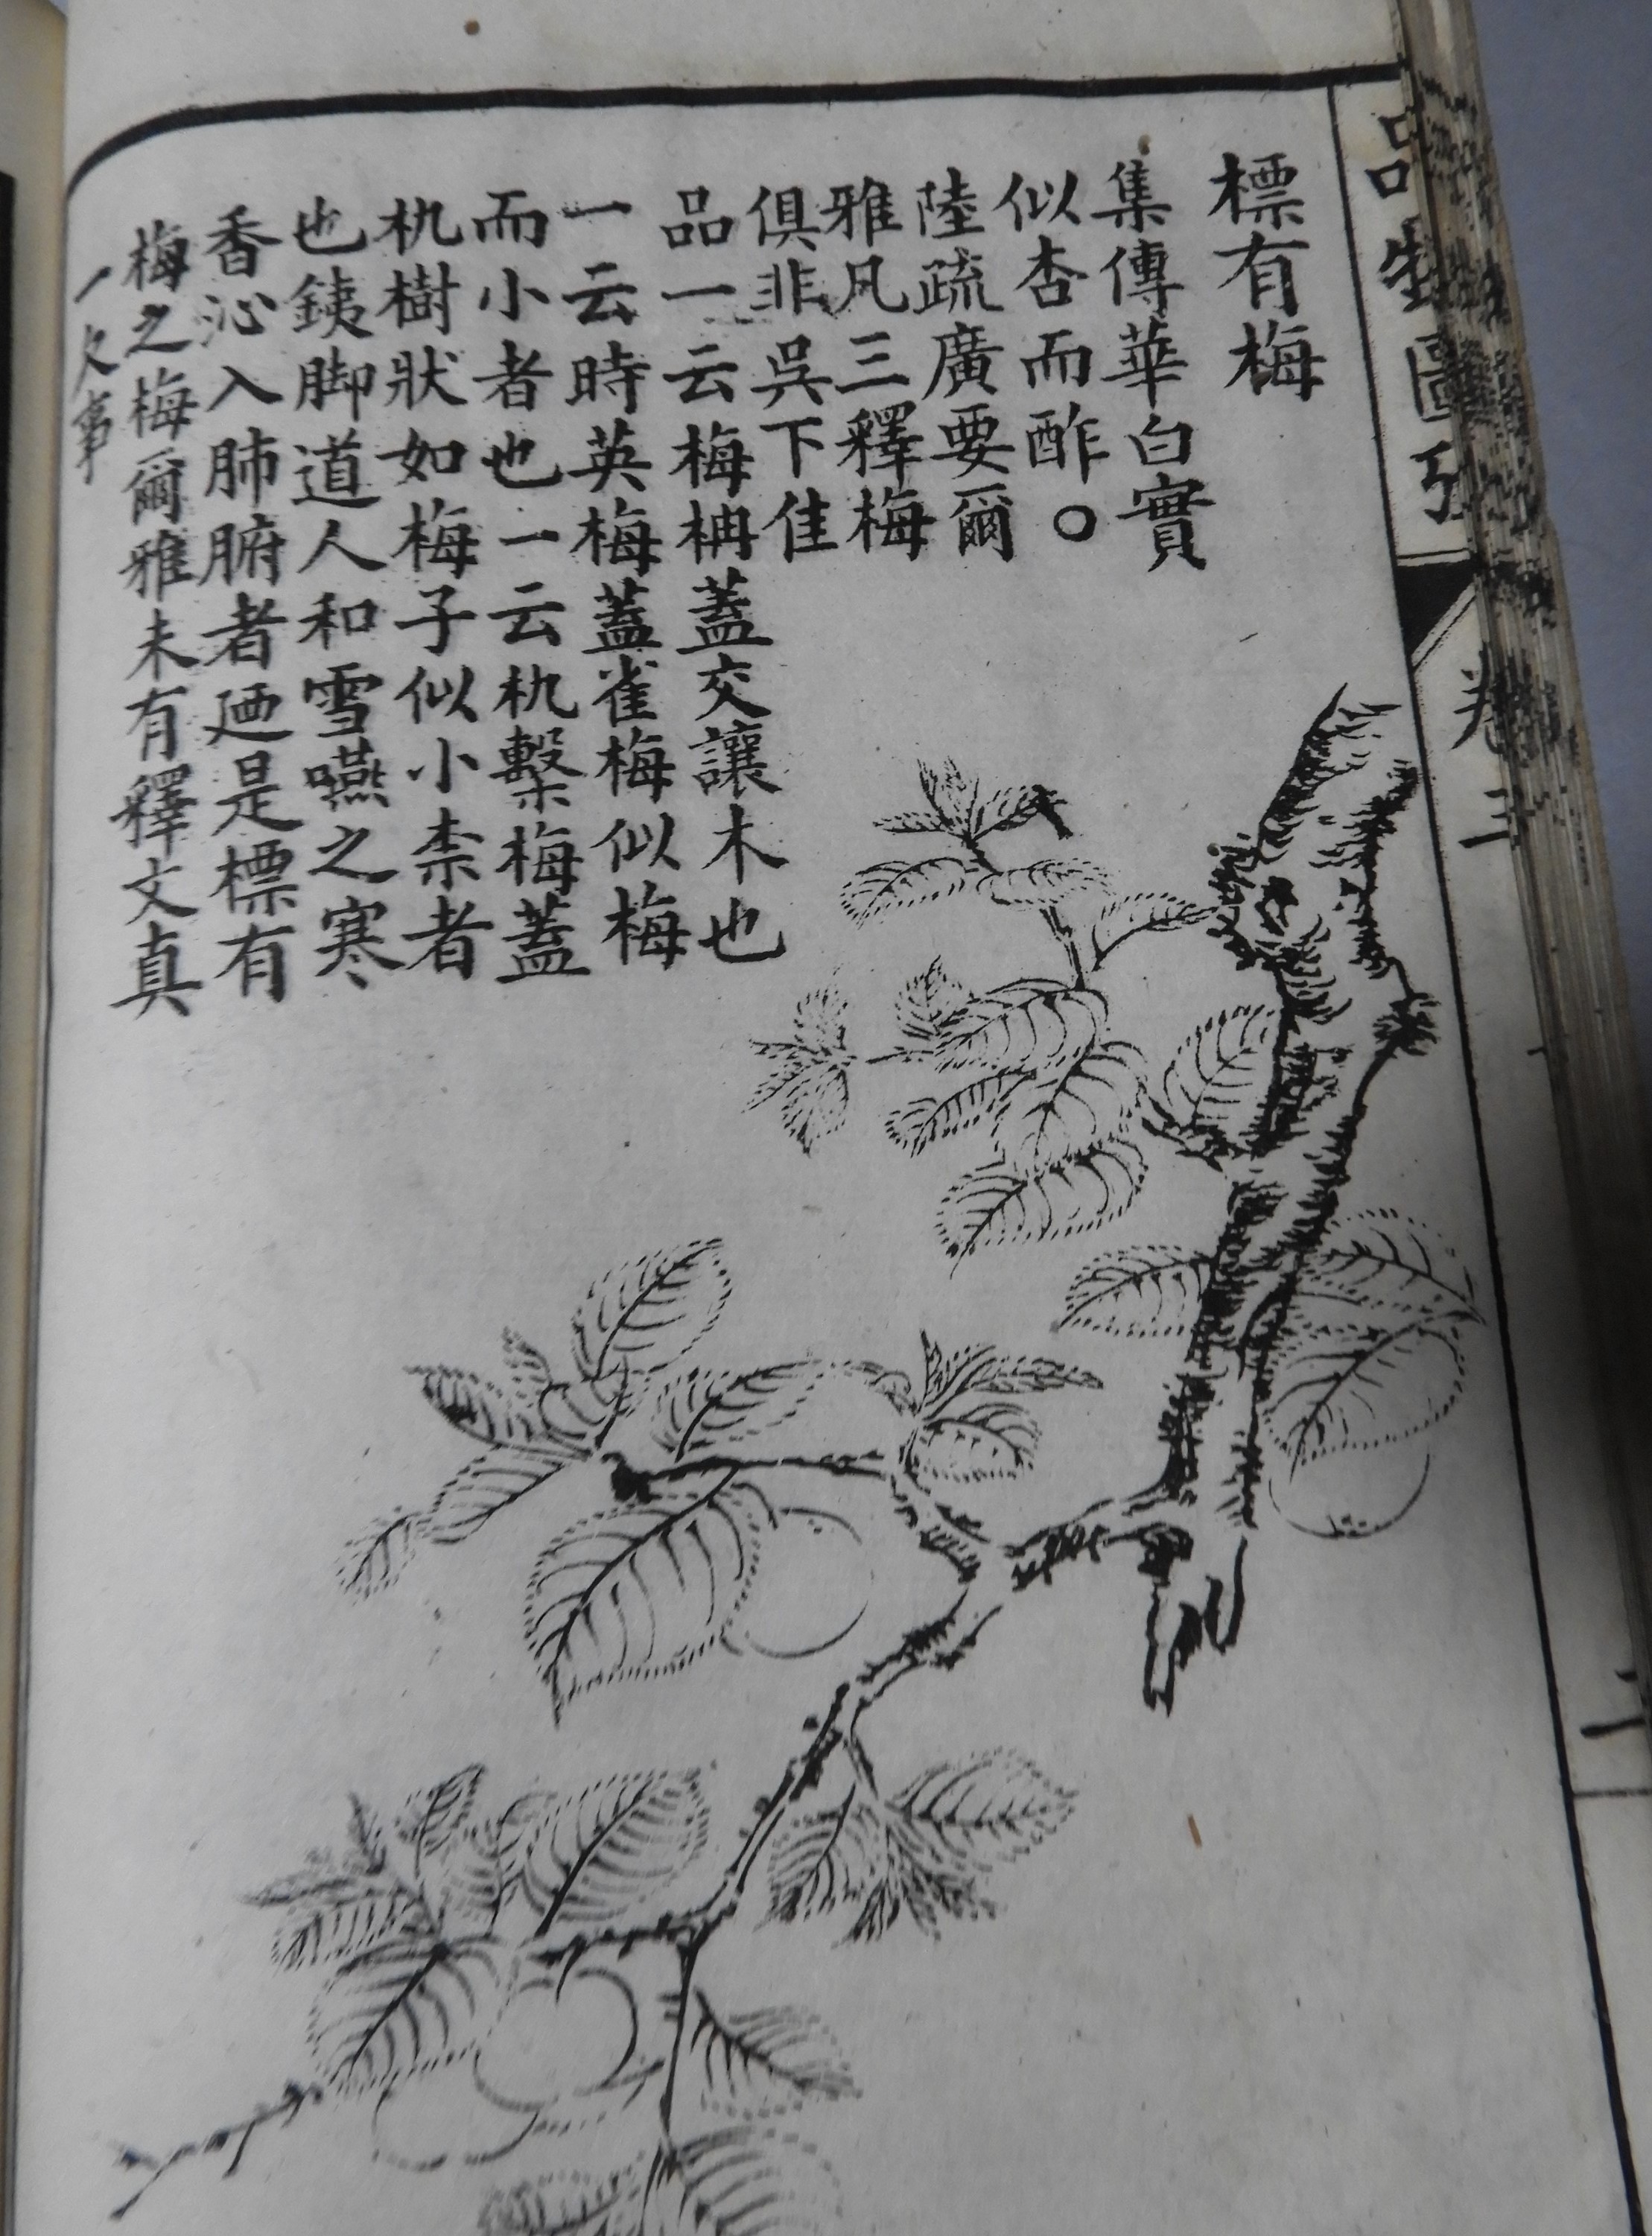 標有梅
集傳華白實
似杏而酢○
陸疏廣要爾
雅凡三釋梅
俱非吳下佳
品一云梅柟蓋交讓木也
一云時英梅蓋雀梅似梅
而小者也一云朹檕梅蓋
朹樹狀如梅子似小柰者
也銕脚道人和雪嚥之寒
香沁入肺腑者廼是標有
梅之梅爾雅未有釋文真
一欠事
品物圖攷
卷三